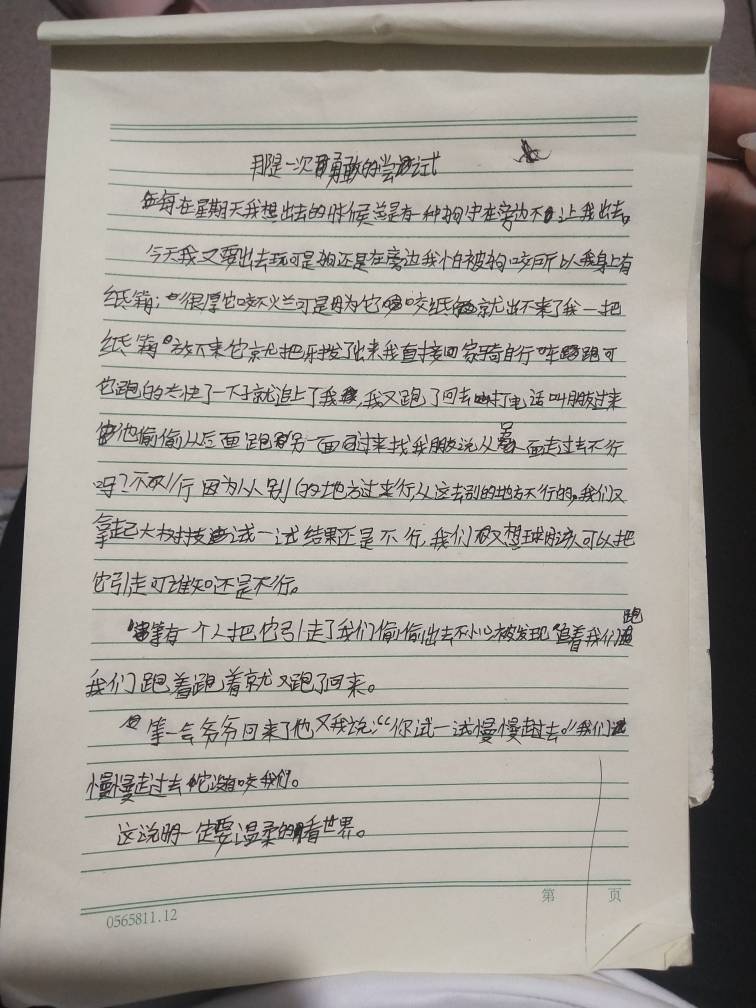 那是一次勇敢的尝试
每在星期天我想出去的时候总是有一种狗守在旁边不让我出去。
今天我又要出去玩可是狗还是在旁边我怕被狗咬所以我身上有
纸箱;很厚它咬不烂可是因为它咬纸就出不来了我一把
纸箱放下来它就把牙拔了出来我直接回家骑自行车跑可
它跑的太快了一下子就追上了我,我又跑了回去打电话叫朋友过来
他偷偷从后面跑另一面过来找我朋友说从另一面走过去不行
吗?不行因为从别的地方过来行,从这去别的地方不行的,我们又
拿起大树枝试一试结果还是不行,我们又想球应该可以把
它引走可谁知还是不行。
等有一个人把它引走了我们偷偷出去不小心被发现追着我们跑
我们跑着跑着就又跑了回来。
等一会爷爷回来了他又我说:“你试一试慢慢走过去。”我们
慢慢走过去它没有咬我们。
这说明一定要温柔的看世界。
第 页
0565811.12